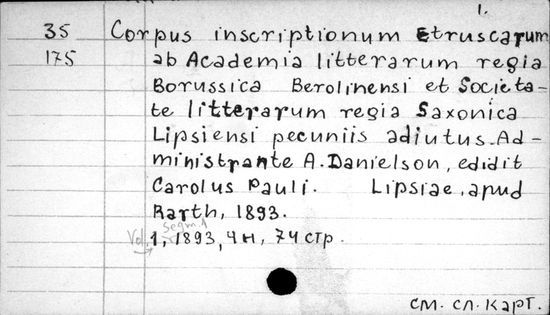 1.
35 Corpus inscriptionum Etruscarum
175 ab Academia litterarum regia
Borussica Berolinensi et Societa-
te litterarum regia Saxonica
Lipsiensi pecuniis adiutus. Ad-
ministrante A. Danielson, edidit
Carolus Pauli. Lipsiae, apud
Barth, 1893.
Segm. 1
Vol. 1, 1893, 4н, 74 стр.
см. сл. карт.